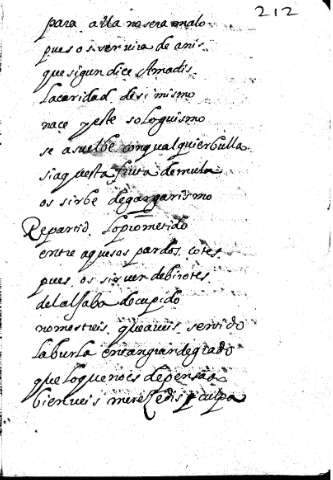 212
para ailla no sera malo
pues os servira de anis
que sigun dice Amadis
la caridad de si mismo
nace y este sologuismo
se asuelbe con qualquier bulla
si aquesta fruta de mula
os sirbe de gargarismo
Repartid lo prometido
entre aquesos pardos cotes
pues os siruen de birotes
del alfaba de cupido
no mostreis que aveis sentido
la burla en tan gran de grado
que lo que no es de pensado
bien veis mereze dis culpa